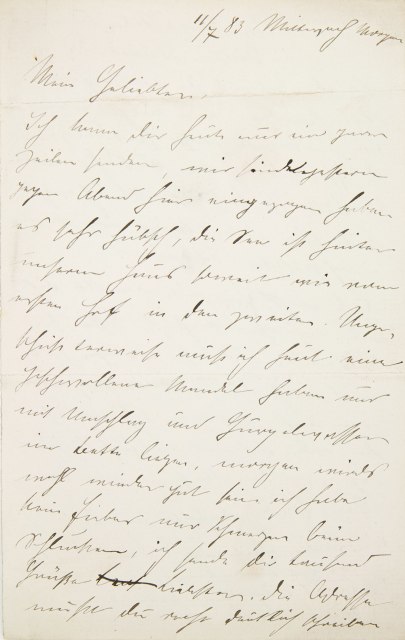 11/7 83 Mittwoch Morgen
Mein Geliebter,
Ich kann dir heute nur ein paar
Zeilen senden, wir sind gestern
gegen Abend hier eingezogen haben
es sehr hübsch, die See ist hinter
unserem Haus soweit wie vom
ersten Hof in den zweiten. Unge-
schickterweise muß ich heut eine
geschwollene Mandel haben und
mit Umschlag und Gurgelwasser
im Bette liegen, morgen wirds
wohl wieder gut sein ich habe
kein Fieber nur Schmerzen beim
Schlucken, ich sende dir tausend
Grüße die Adresse
mußt du recht deutlich schreiben